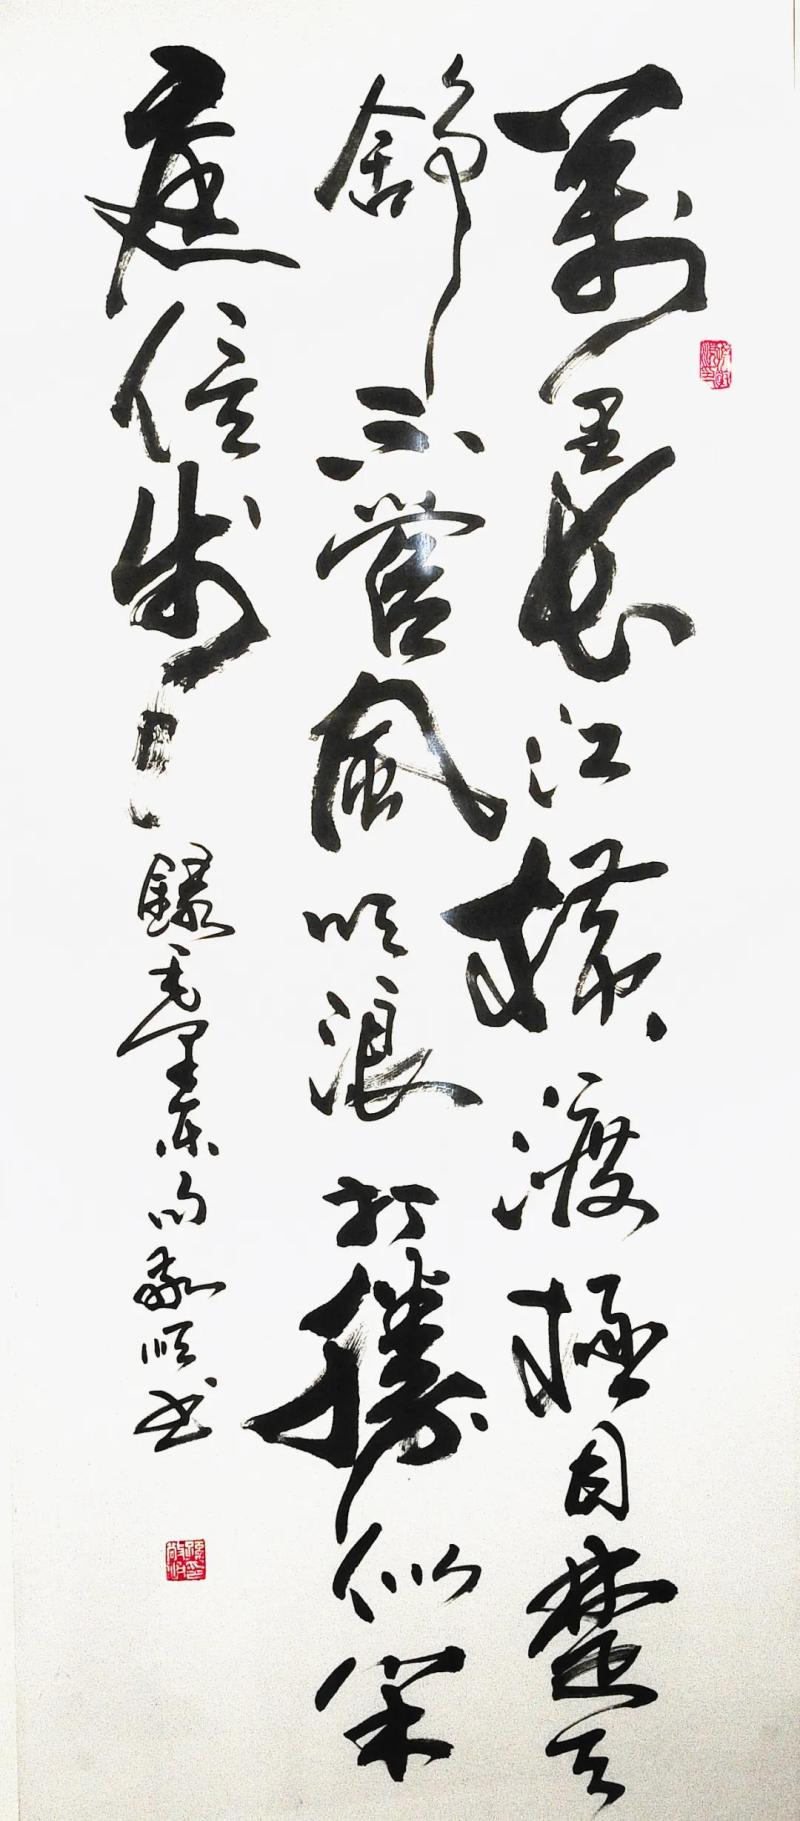 萬里長江橫渡極目楚天
舒不管風吹浪打勝似閑
庭信步 錄毛澤東句敬順书